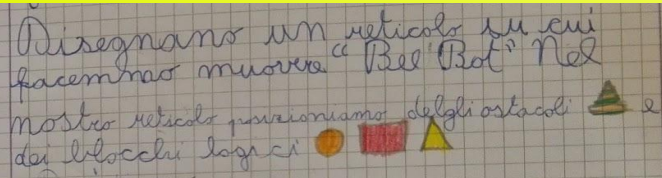 Disegnano un reticolo su cui
facemmao muovere "Bee Bot" Nel
nostro reticolo posizioniamo delgli ostacoli e
dei blocchi logici